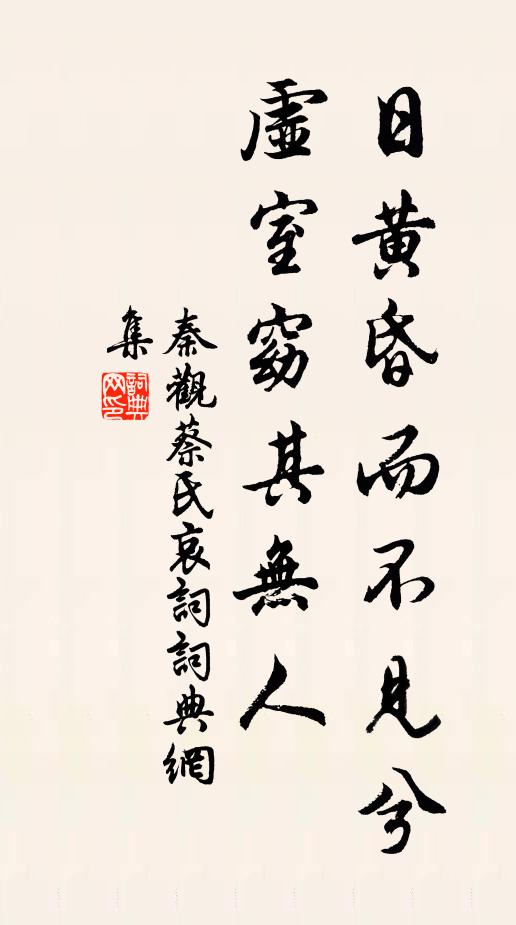 日黄昏而不見兮
虛室窈其無人
秦觀蔡氏哀詞詞典網
集
詞典网印